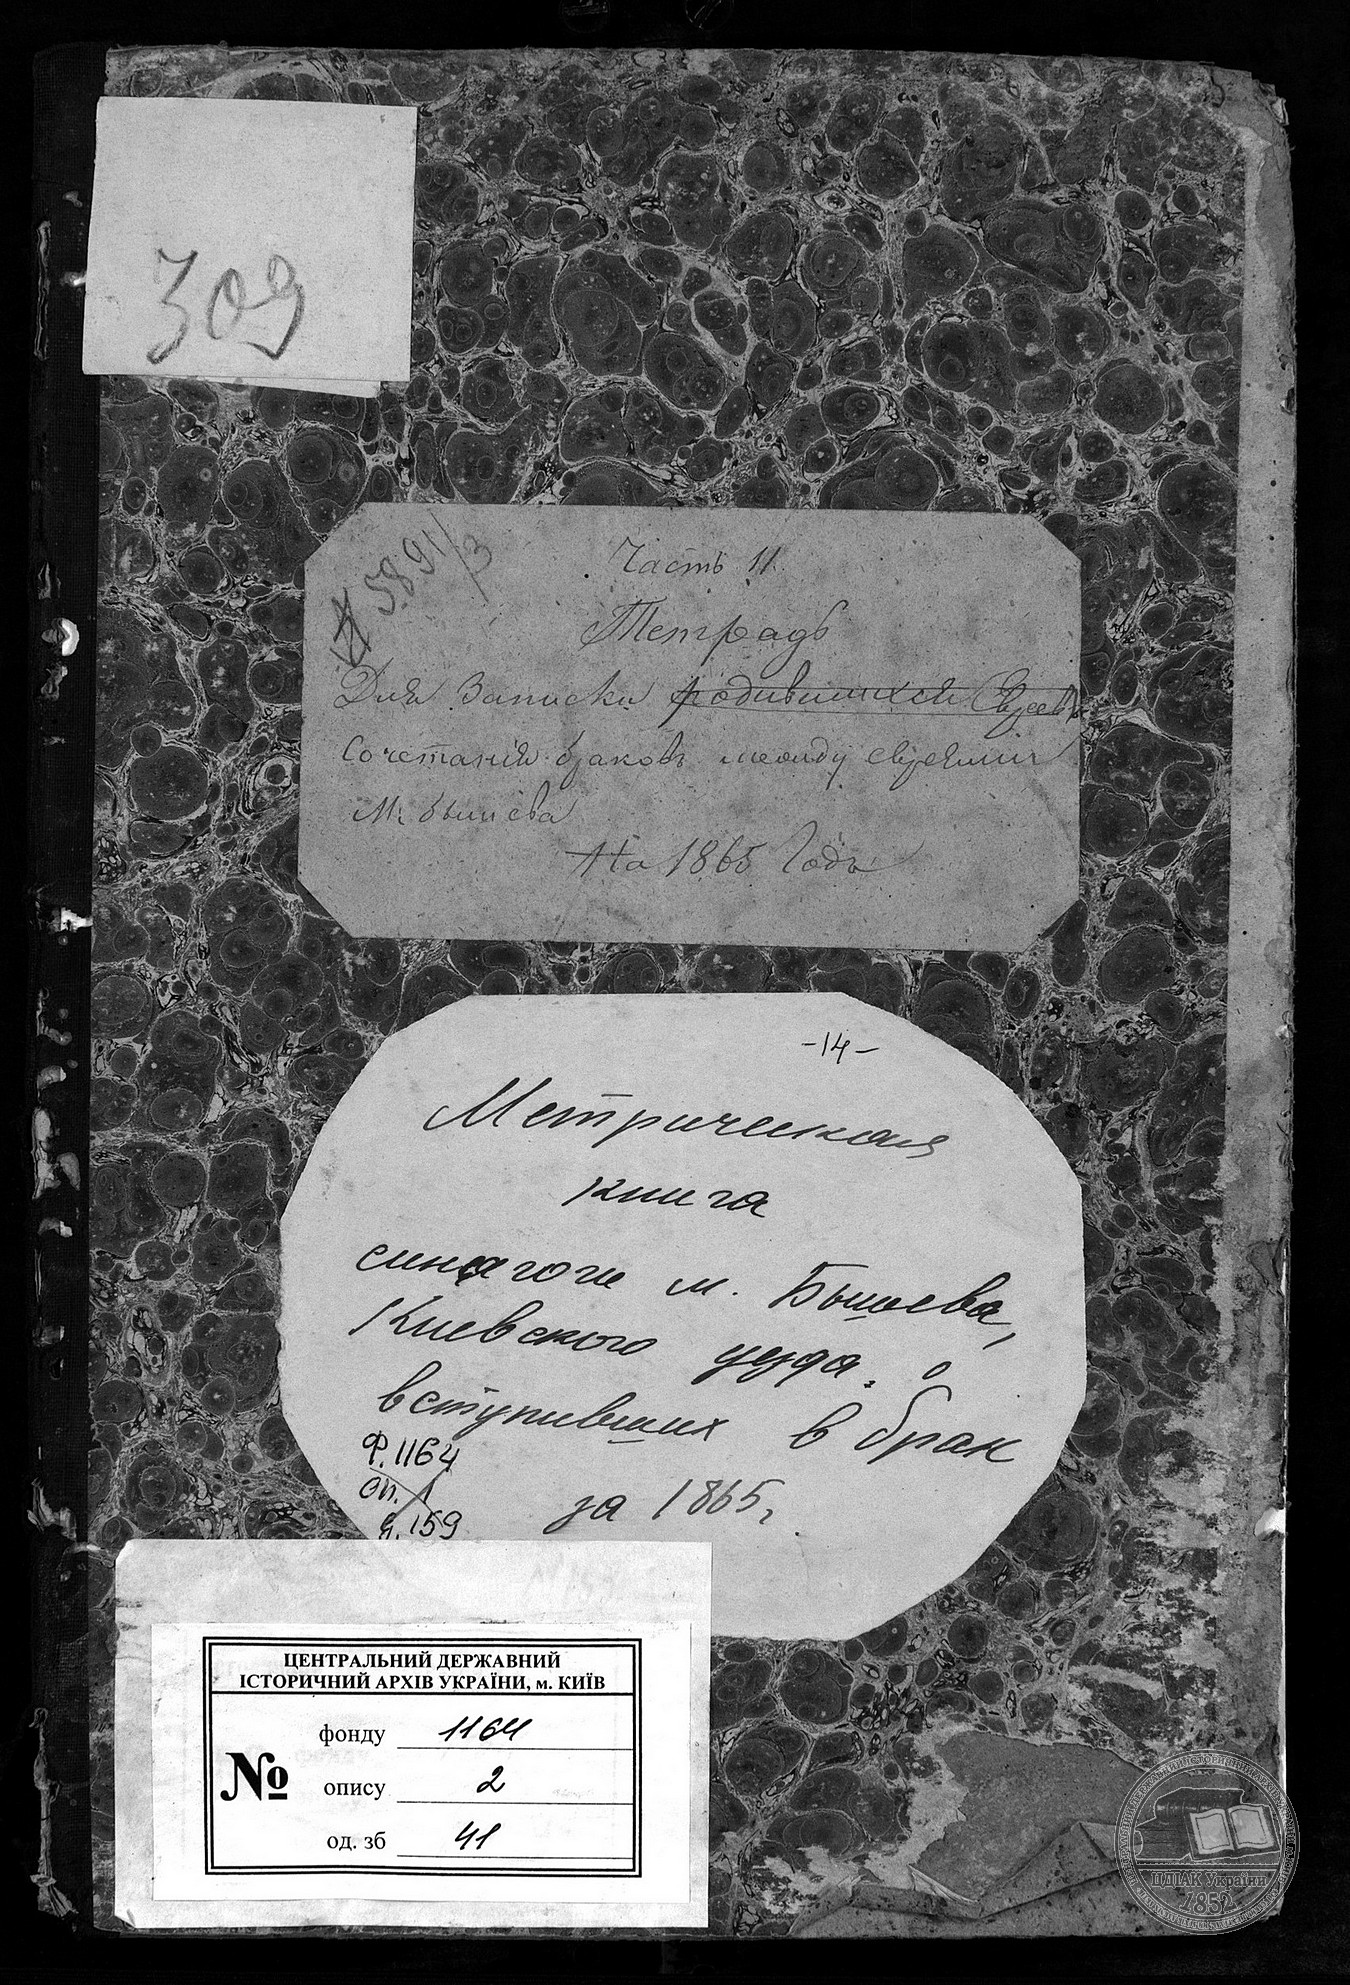 309
№ 5891/3
Часть II.
Тетрадь
Для Записки родившихся Евреевъ
Сочетанія браковъ между евреями
М. бышева
На 1865 Годъ
-14-
Метрическая
книга
синагоги м. Бышева,
Киевского уезда, о
вступивших в брак
за 1865 г.
Ф. 1164
оп. 1
д. 159
ЦЕНТРАЛЬНИЙ ДЕРЖАВНИЙ
ІСТОРИЧНИЙ АРХІВ УКРАЇНИ, м. КИЇВ
№
фонду 1164
опису 2
од. зб 41
ЦДІАК України
1852